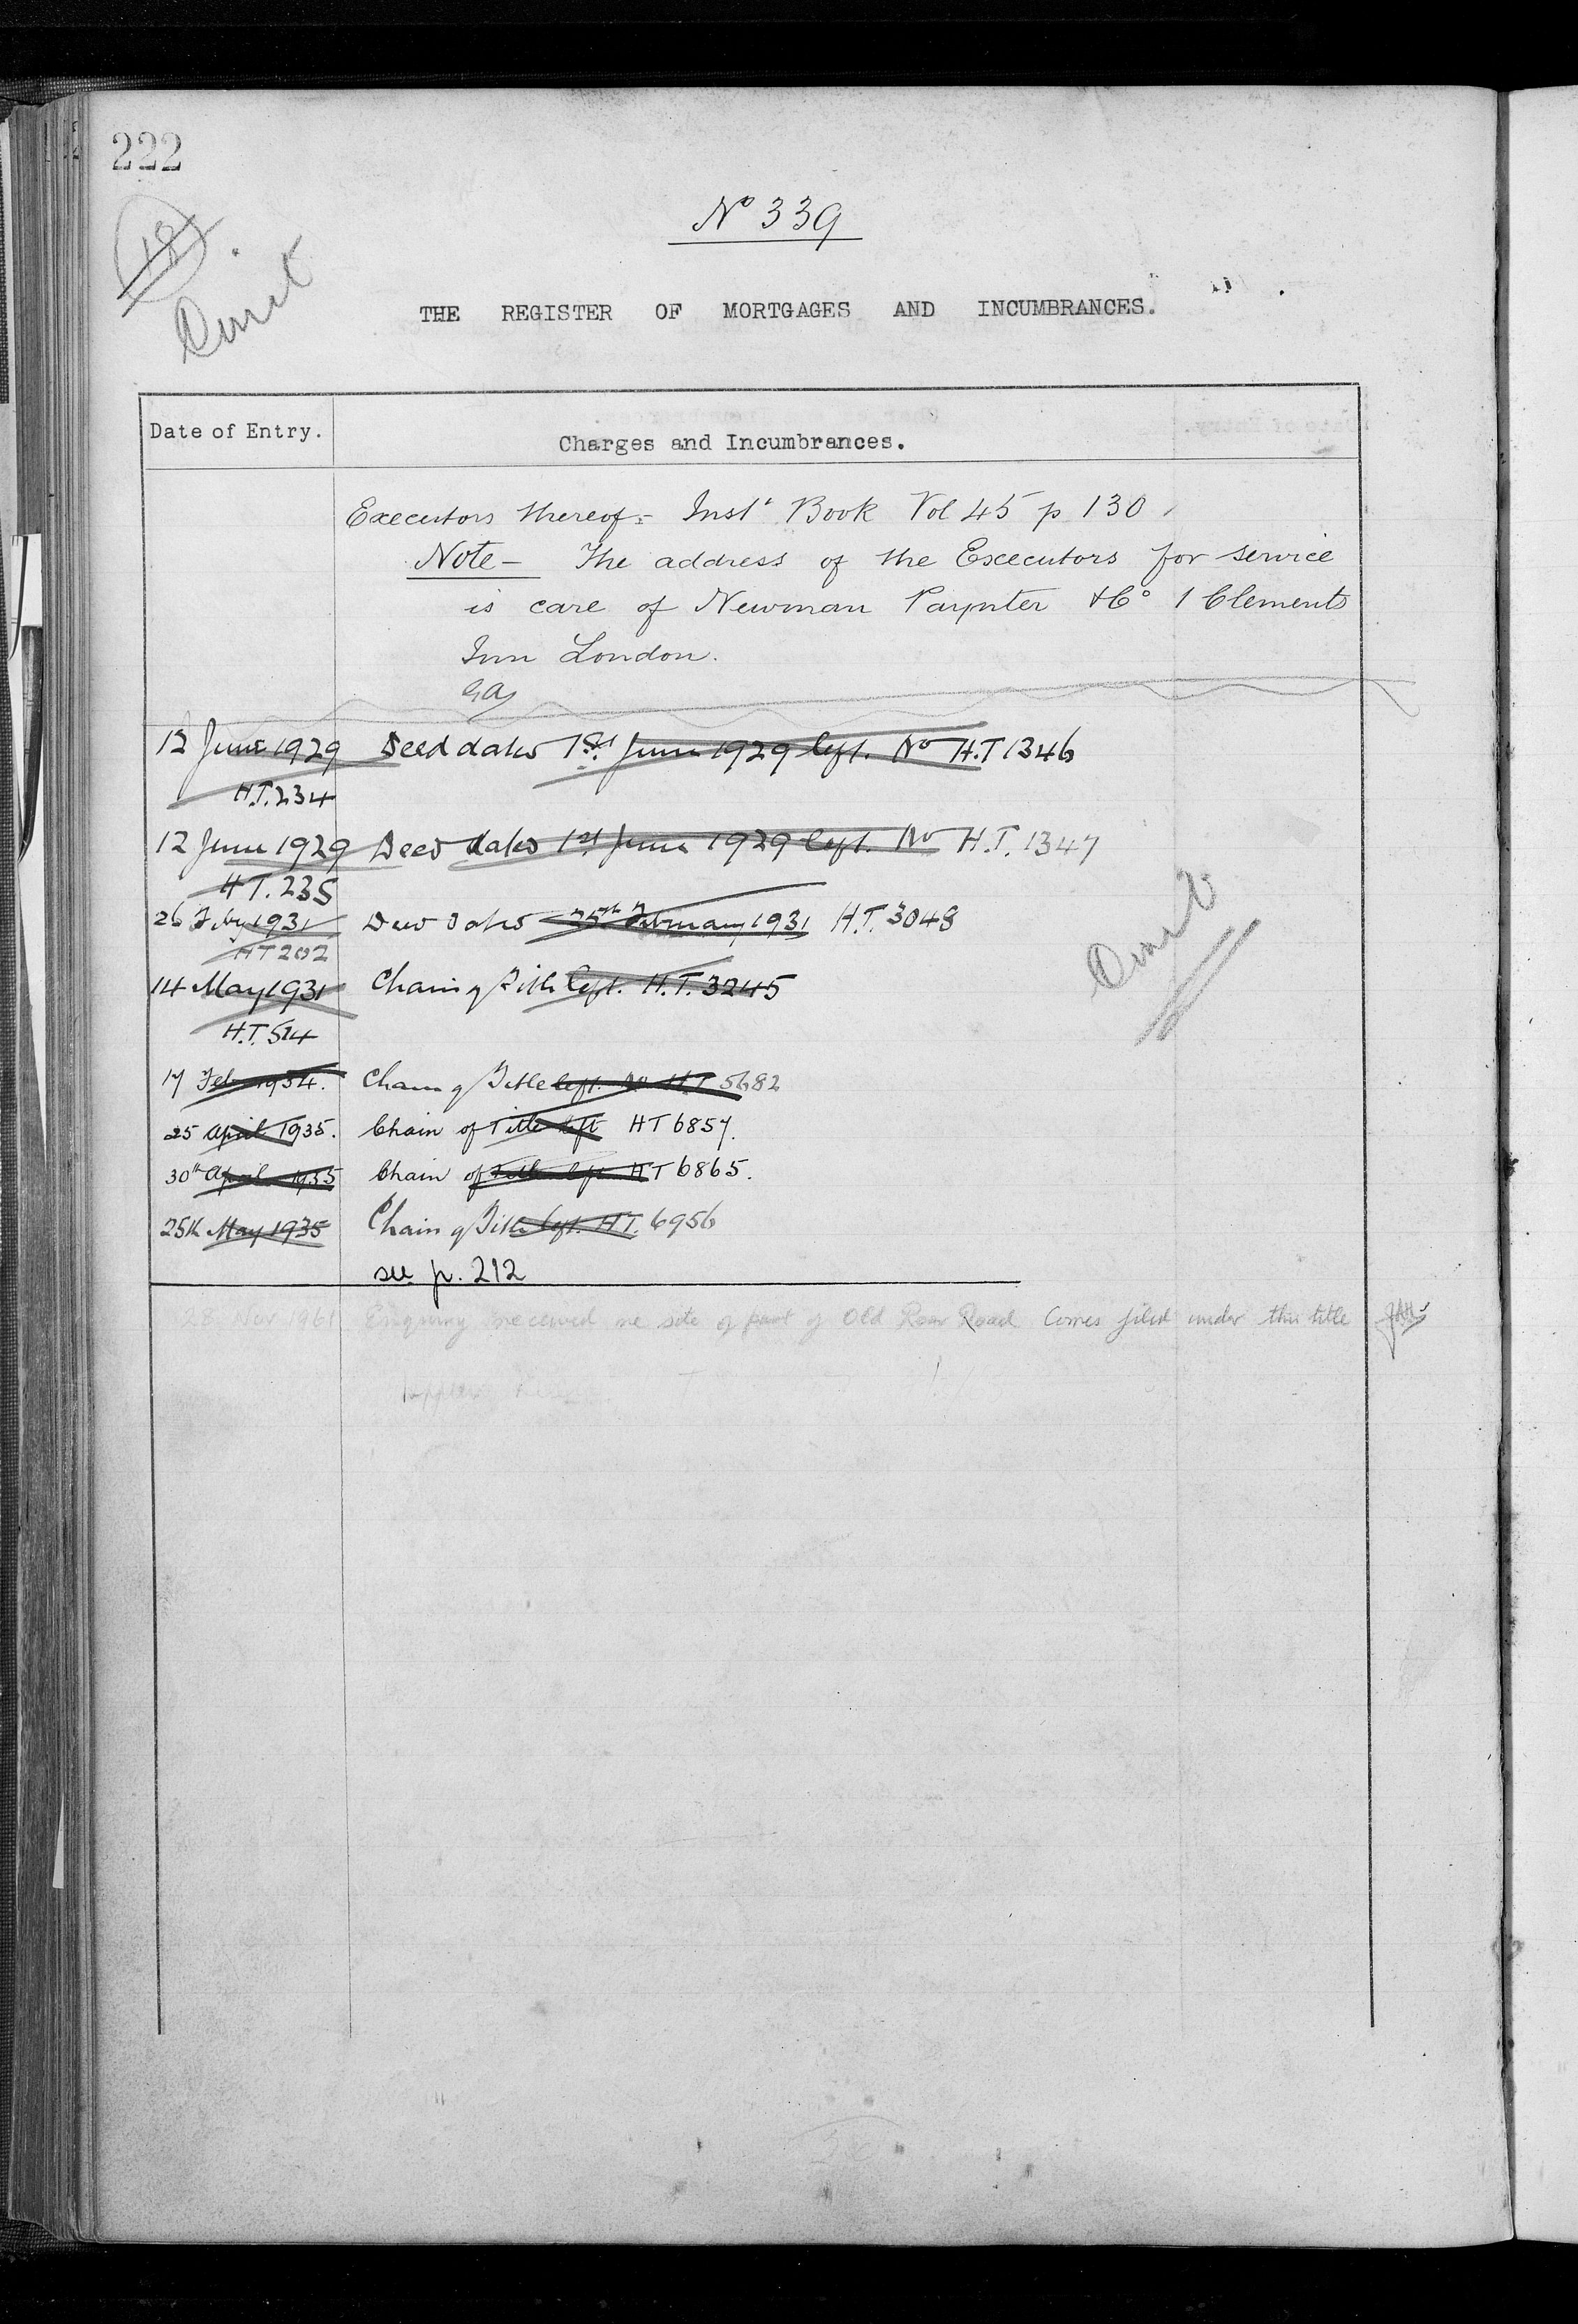 222
No 339
18
Omit
THE REGISTER OF MORTGAGES AND INCUMBRANCES.
Date of Entry.
Charges and Incumbrances.
Executors thereof:- Instt Book Vol 45 p 130.
Note - The address of the Executors for service
is care of Newman Paynter & Co 1 Clements
Inn London.
12 June 1929 Deed dated 1st June 1929 left. No H.T 1346
H.T. 234
12 June 1929 Deed dated 1st June 1929 left. No H.T. 1347
H.T. 235
26 Feby 1931 Deed dated 25th February 1931 H.T. 3048
HT 202
Omit
14 May 1931 Chain of Title left. H.T. 3245
H.T. 514
17 Feb 1934. Chain of Title left. No HT 5682
25 April 1935. Chain of Title left HT 6857.
30th April 1935 Chain of Title left HT 6865.
25th May 1935 Chain of Title left. HT. 6956
see p. 212
28 Nov 1961 Enquiry received re site of part of Old Roar Road Corres filed under this title